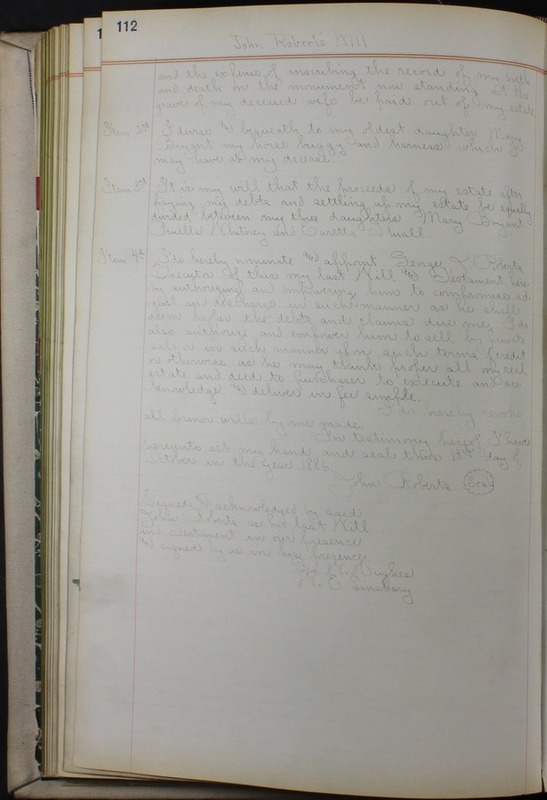 112
John Roberts Will
and the expense of inscribing the record of my birth
and death on the monument now standing at the
grave of my deceased wife be paid out of my estate
Item 2nd I devise & bequeath to my oldest daughter Mary
Bryant my horse buggy and harness which I
may have at my decease.
Item 3rd It is my will that the proceeds of my estate after
paying my debts and settling up my estate be equally
divided between my three daughters Mary Bryant
Whitney and Small.
Item 4th I do hereby nominate & appoint George L Roberts
Executor of this my last Will & Testament here
by authorizing and empowering him to compromise ad
just and discharge in such manner as he shall
deem proper the debts and claims due me, I do
also authorize and empower him to sell by private
sale or in such manner upon such terms of credit
or otherwise as he may think proper all my real
estate and deed to purchaser to execute and ack
knowledge & deliver in fee simple.
I do hereby revoke
all former wills by me made.
In testimony hereof I have
hereunto set my hand and seal this 13th day of
October in the year 1886.
John Roberts Seal
Signed & acknowledged by said
John Roberts as his last Will
and Testament in our presence
& signed by us in his presence
Hughes